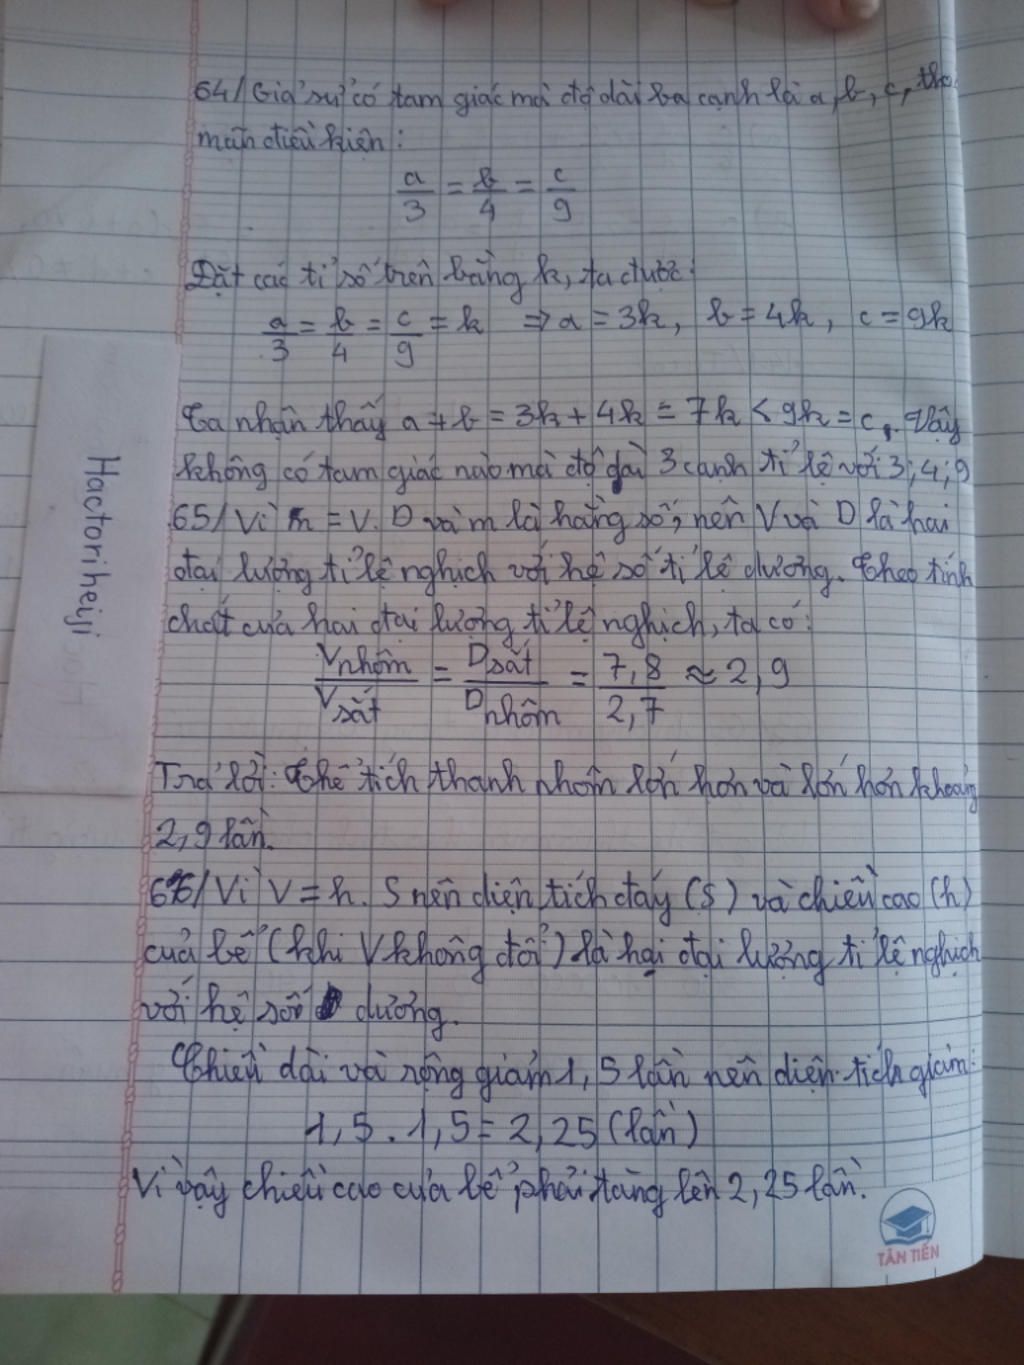 64/ Giả sử có tam giác mà độ dài ba cạnh là a, b, c, tho
mãn điều kiện:
a/3 = b/4 = c/9
Đặt các tỉ số trên bằng k, ta được:
a/3 = b/4 = c/9 = k ⇒ a = 3k, b = 4k, c = 9k
Ta nhận thấy a + b = 3k + 4k = 7k < 9k = c. Vậy
không có tam giác nào mà độ dài 3 cạnh tỉ lệ với 3; 4; 9
65/ Vì m = V. D và m là hằng số, nên V và D là hai
đại lượng tỉ lệ nghịch với hệ số tỉ lệ dương. Theo tính
chất của hai đại lượng tỉ lệ nghịch, ta có:
Vnhôm/Vsắt = Dsắt/Dnhôm = 7,8/2,7 ≈ 2,9
Trả lời: Thể tích thanh nhôm lớn hơn và lớn hơn khoảng
2,9 lần.
66/ Vì V = h. S nên diện tích đáy (S) và chiều cao (h)
của bể (khi V không đổi) là hai đại lượng tỉ lệ nghịch
với hệ số dương.
Chiều dài và rộng giảm 1,5 lần nên diện tích giảm:
1,5 . 1,5 = 2,25 (lần)
Vì vậy chiều cao của bể phải tăng lên 2,25 lần.
Hactoriheiji
TÂN TIẾN